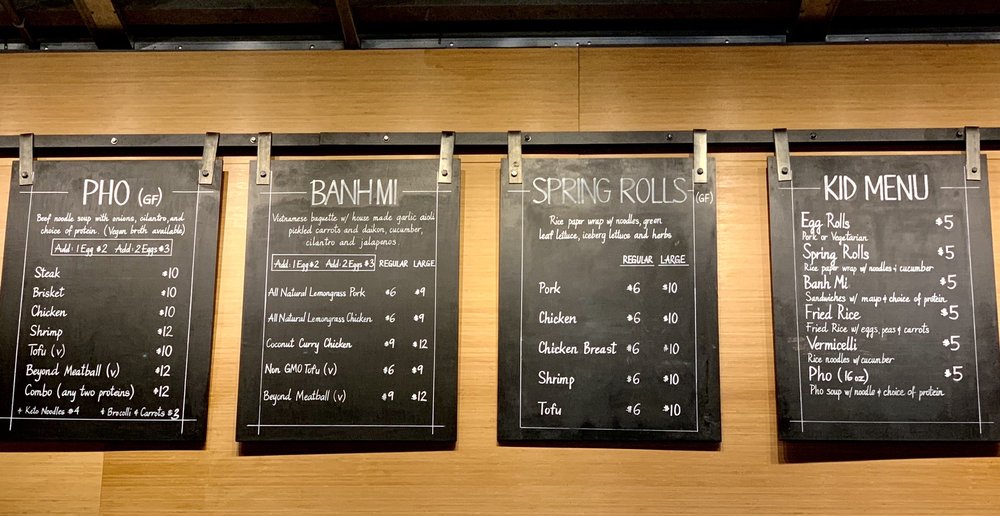 PHO (GF)
Beef noodle soup with onions, cilantro, and
choice of protein. (Vegan broth available)
Add: 1 Egg $2 Add: 2 Eggs $3
Steak $10
Brisket $10
Chicken $10
Shrimp $12
Tofu (v) $10
Beyond Meatball (v) $12
Combo (any two proteins) $12
+ Keto Noodles $4 + Brocolli & Carrots $3
BANH MI
Vietnamese baguette w/ house made garlic aioli
pickled carrots and daikon, cucumber,
cilantro and jalapenos.
Add: 1 Egg $2 Add: 2 Eggs $3 REGULAR LARGE
All Natural Lemongrass Pork $6 $9
All Natural Lemongrass Chicken $6 $9
Coconut Curry Chicken $9 $12
Non GMO Tofu (v) $6 $9
Beyond Meatball (v) $9 $12
SPRING ROLLS (GF)
Rice paper wrap w/ noodles, green
leaf lettuce, iceberg lettuce and herbs
REGULAR LARGE
Pork $6 $10
Chicken $6 $10
Chicken Breast $6 $10
Shrimp $6 $10
Tofu $6 $10
KID MENU
Egg Rolls $5
Pork or Vegetarian
Spring Rolls $5
Rice paper wrap w/ noodles & cucumber
Banh Mi $5
Sandwiches w/ mayo & choice of protein
Fried Rice $5
Fried Rice w/ eggs, peas & carrots
Vermicelli $5
Rice noodles w/ cucumber
Pho (16 oz) $5
Pho soup w/ noodle & choice of protein